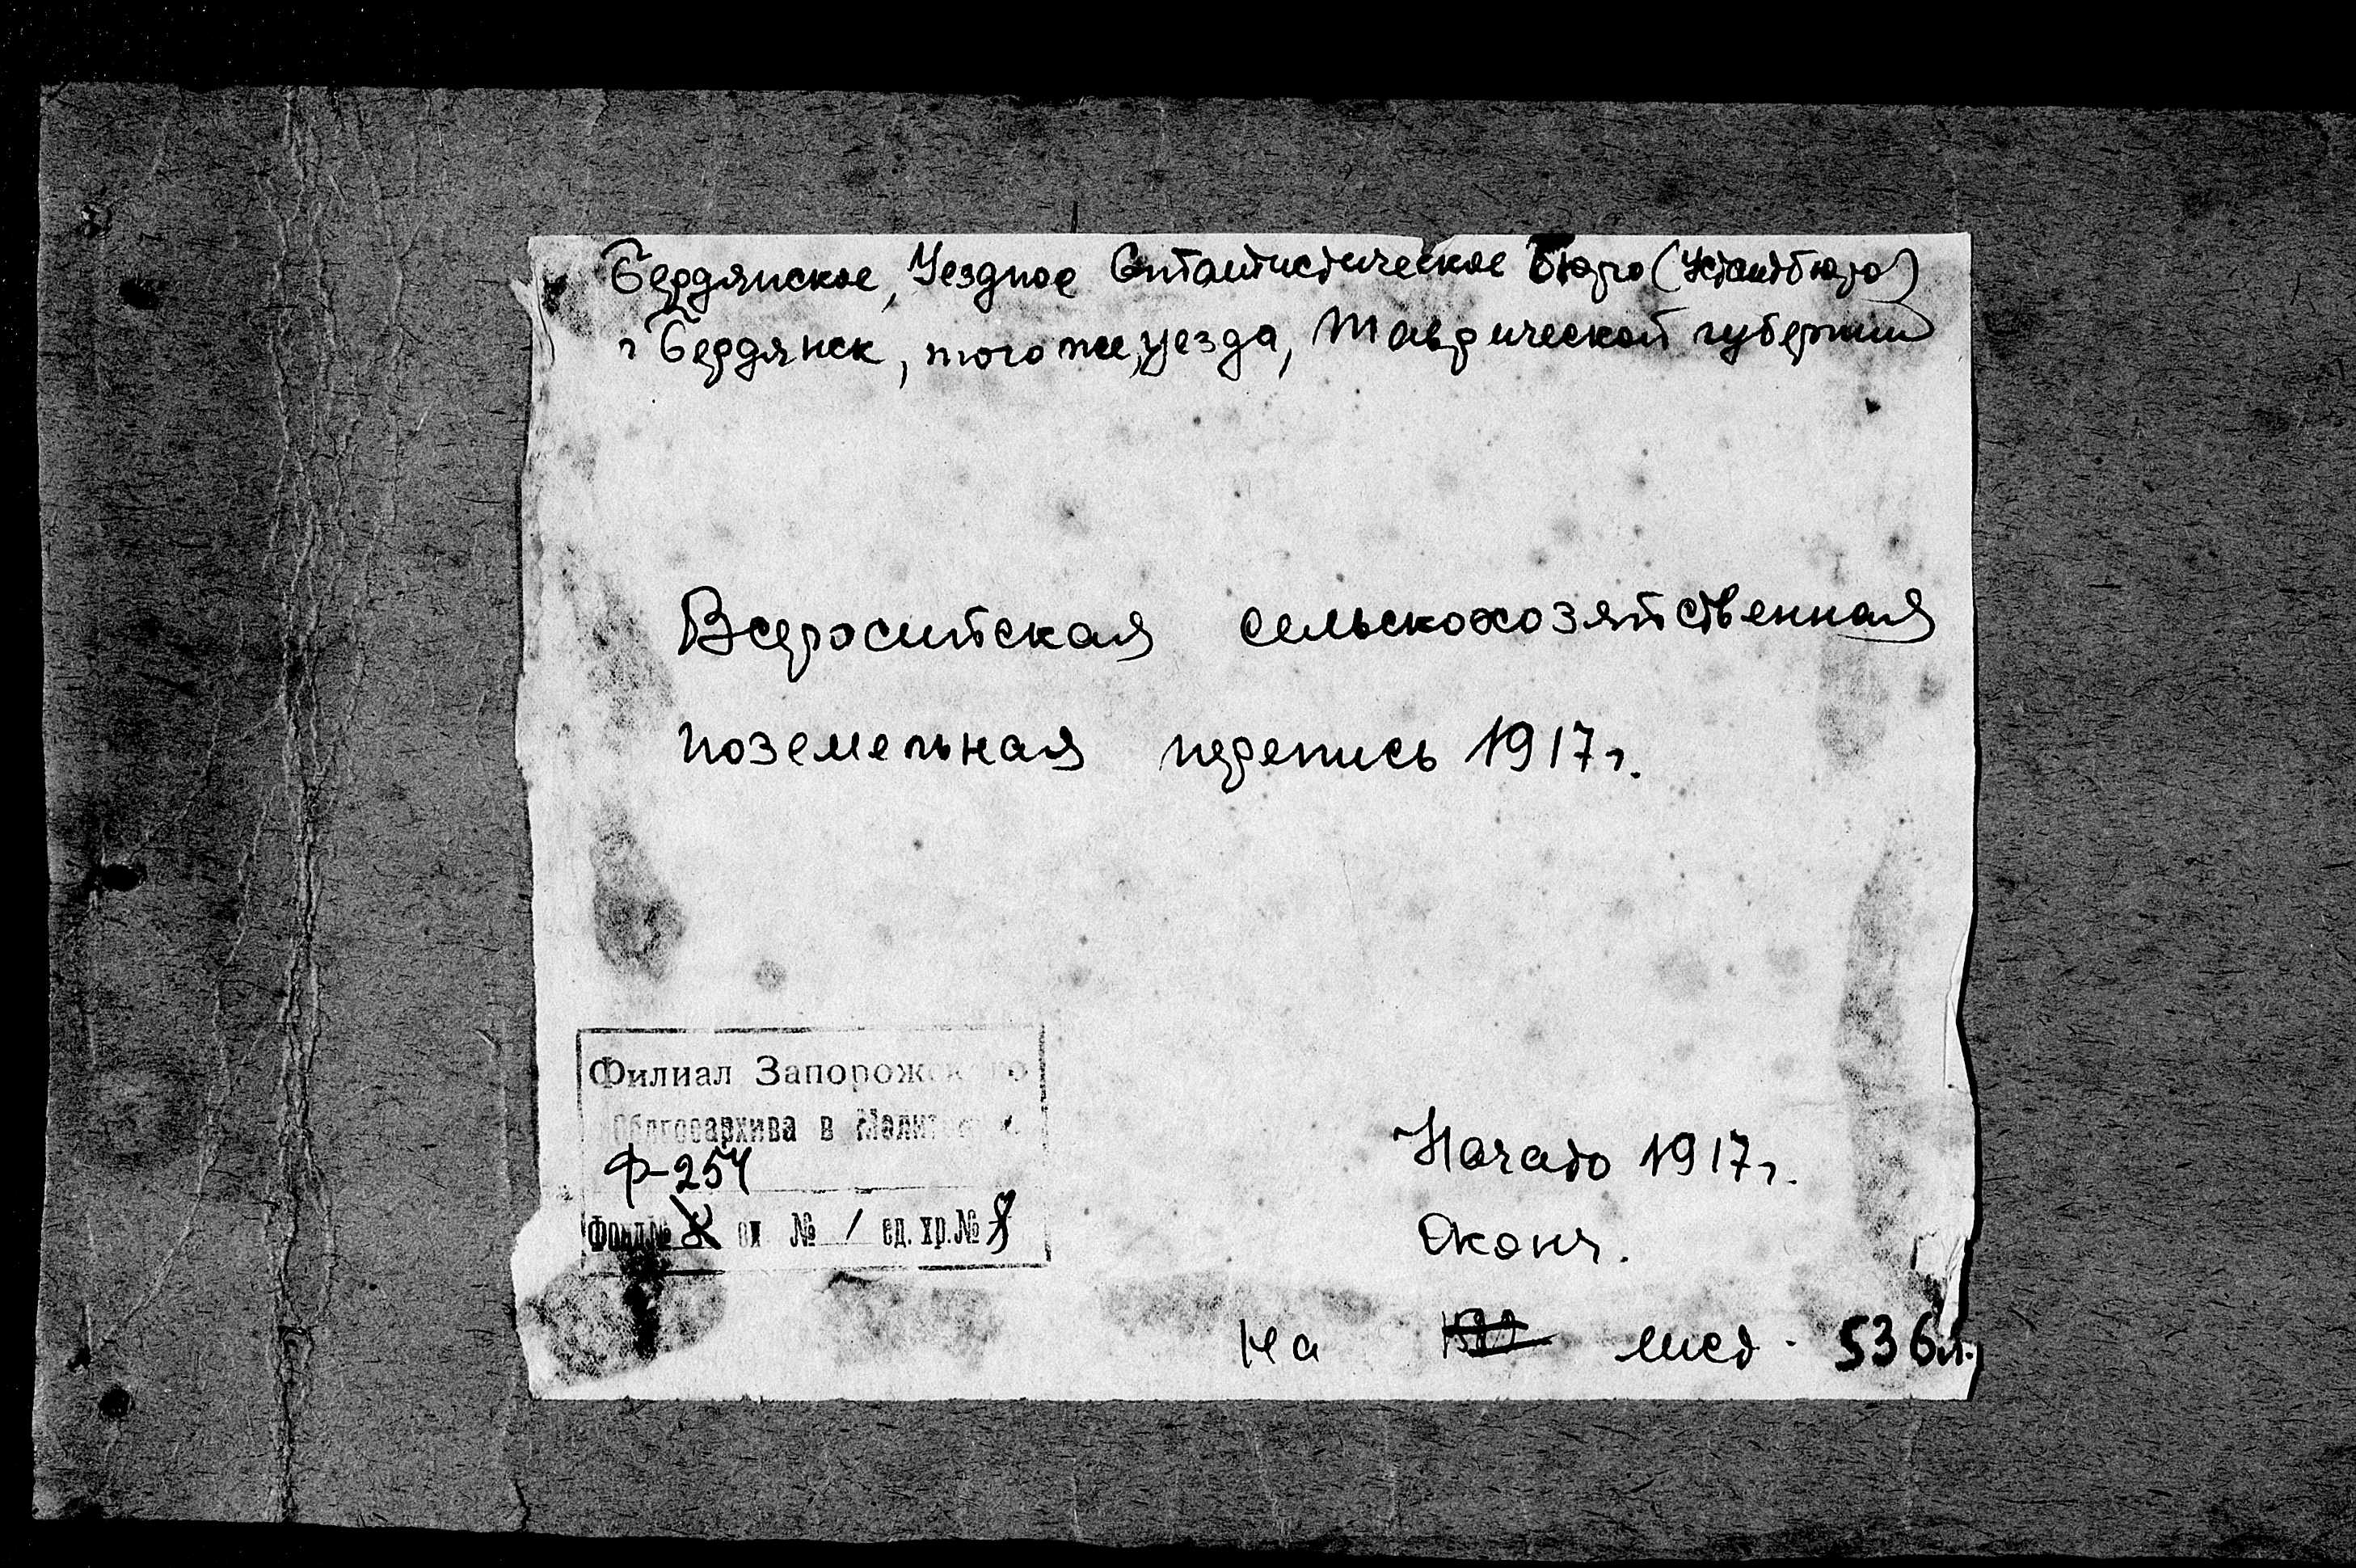 Бердянское, Уездное Статистическое Бюро (Устатбюро)
г Бердянск, того же, уезда, Таврической губернии
Всеросийская сельскохозяйственная
поземельная перепись 1917г.
Филиал Запорожского
Облгосархива в Мелитополе
Ф-254
Фонд № оп № 1 ед. хр. № 8
Начато 1917г.
Оконч.
На лист - 536л.